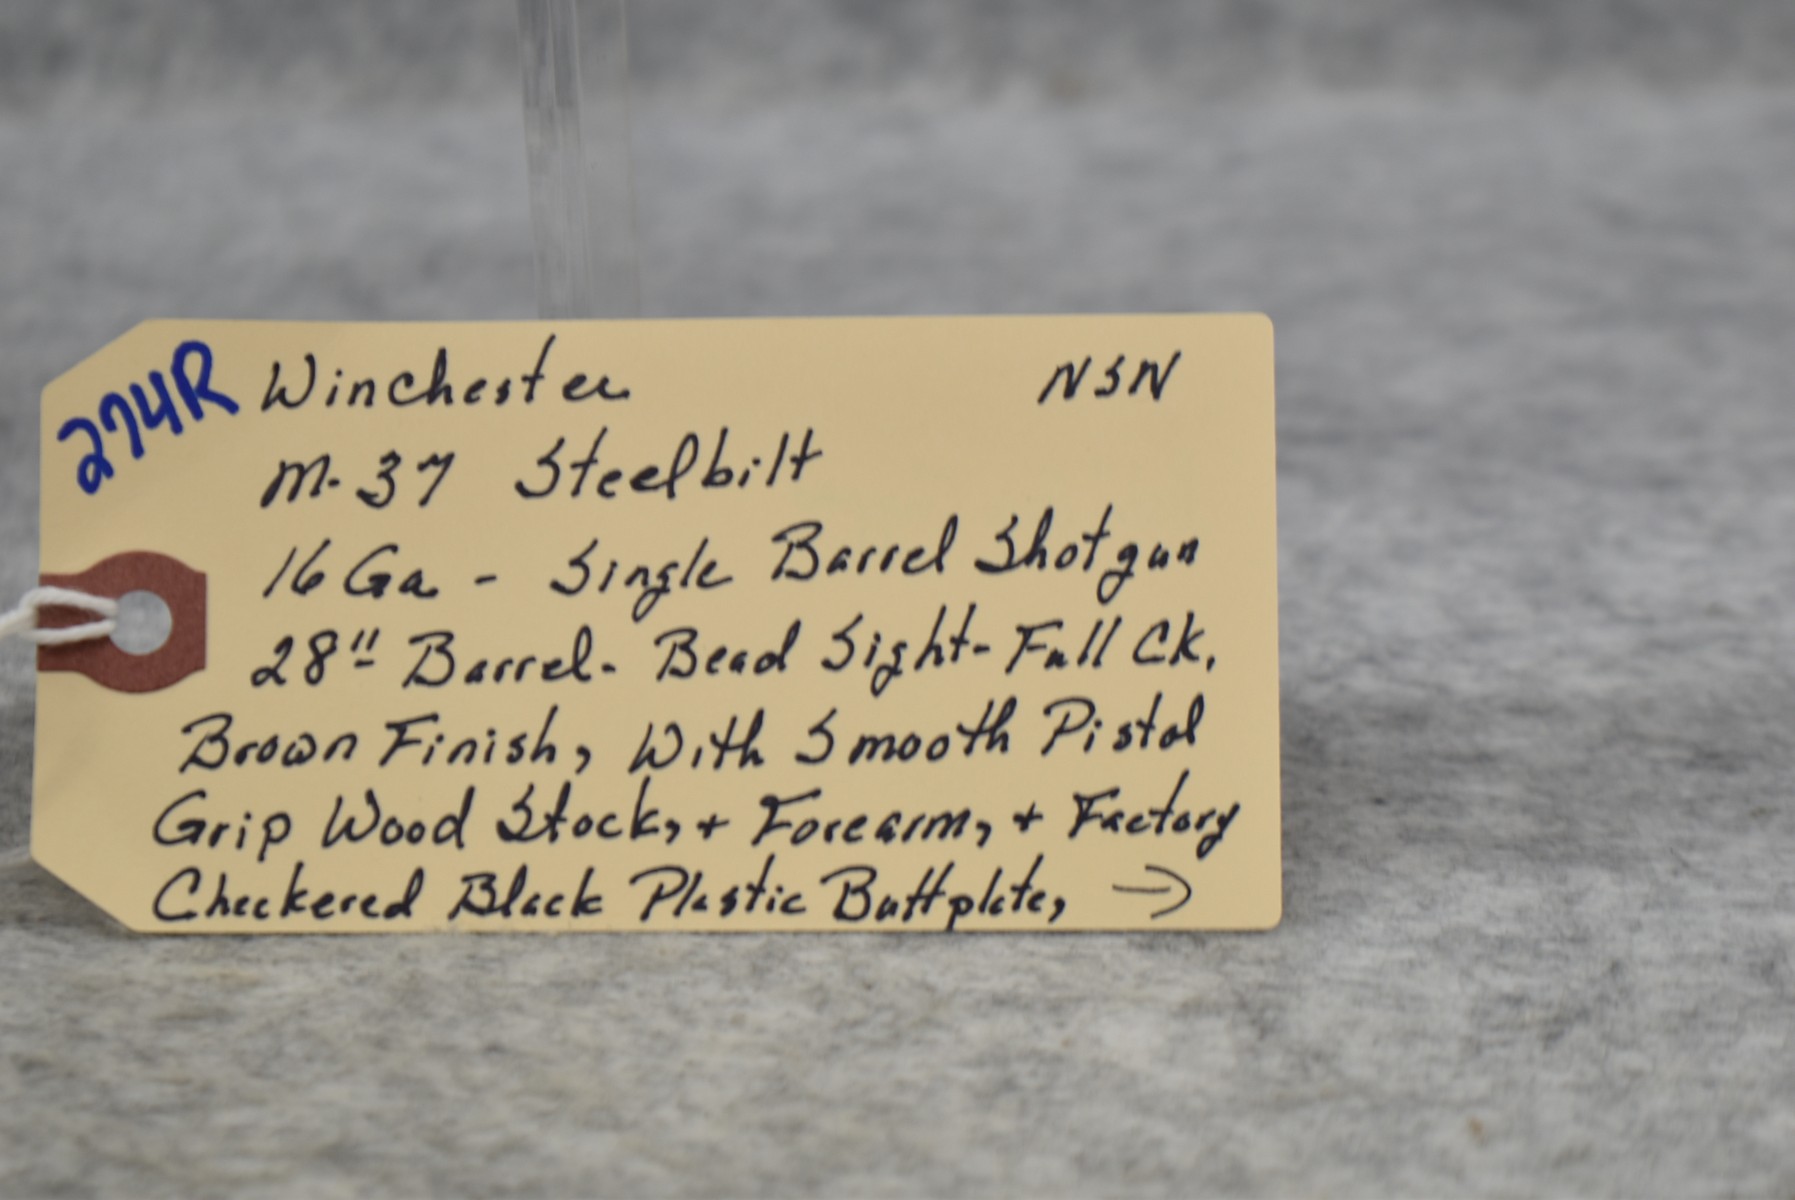 274R Winchester NSN
M-37 Steelbilt
16 Ga - Single Barrel Shotgun
28" Barrel - Bead Sight - Full Ck.
Brown Finish, With Smooth Pistol
Grip Wood Stock, + Forearm, + Factory
Checkered Black Plastic Buttplate, →